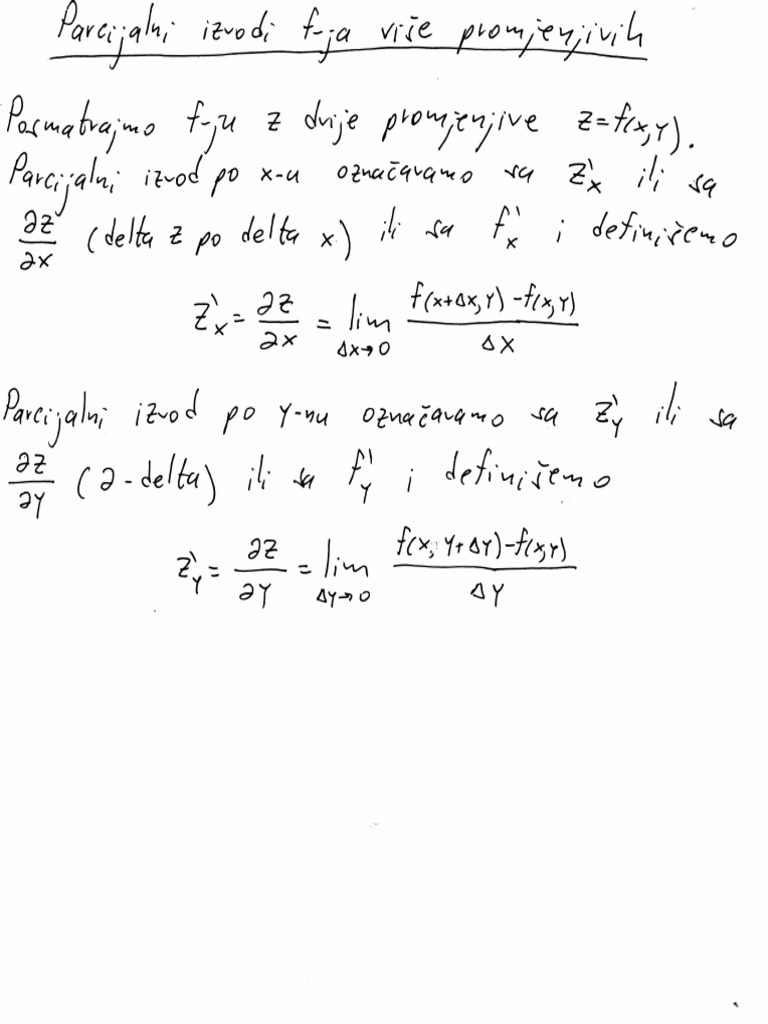 Parcijalni izvodi f-ja više promjenjivih
Posmatrajmo f-ju z dvije promjenjive z=f(x,y).
Parcijalni izvod po x-u označavamo sa z'ₓ ili sa
∂z/∂x (delta z po delta x) ili sa f'ₓ i definišemo
z'ₓ = ∂z/∂x = lim_{Δx→0} (f(x+Δx,y)-f(x,y))/Δx
Parcijalni izvod po y-nu označavamo sa z'_y ili sa
∂z/∂y (∂-delta) ili sa f'_y i definišemo
z'_y = ∂z/∂y = lim_{Δy→0} (f(x,y+Δy)-f(x,y))/Δy